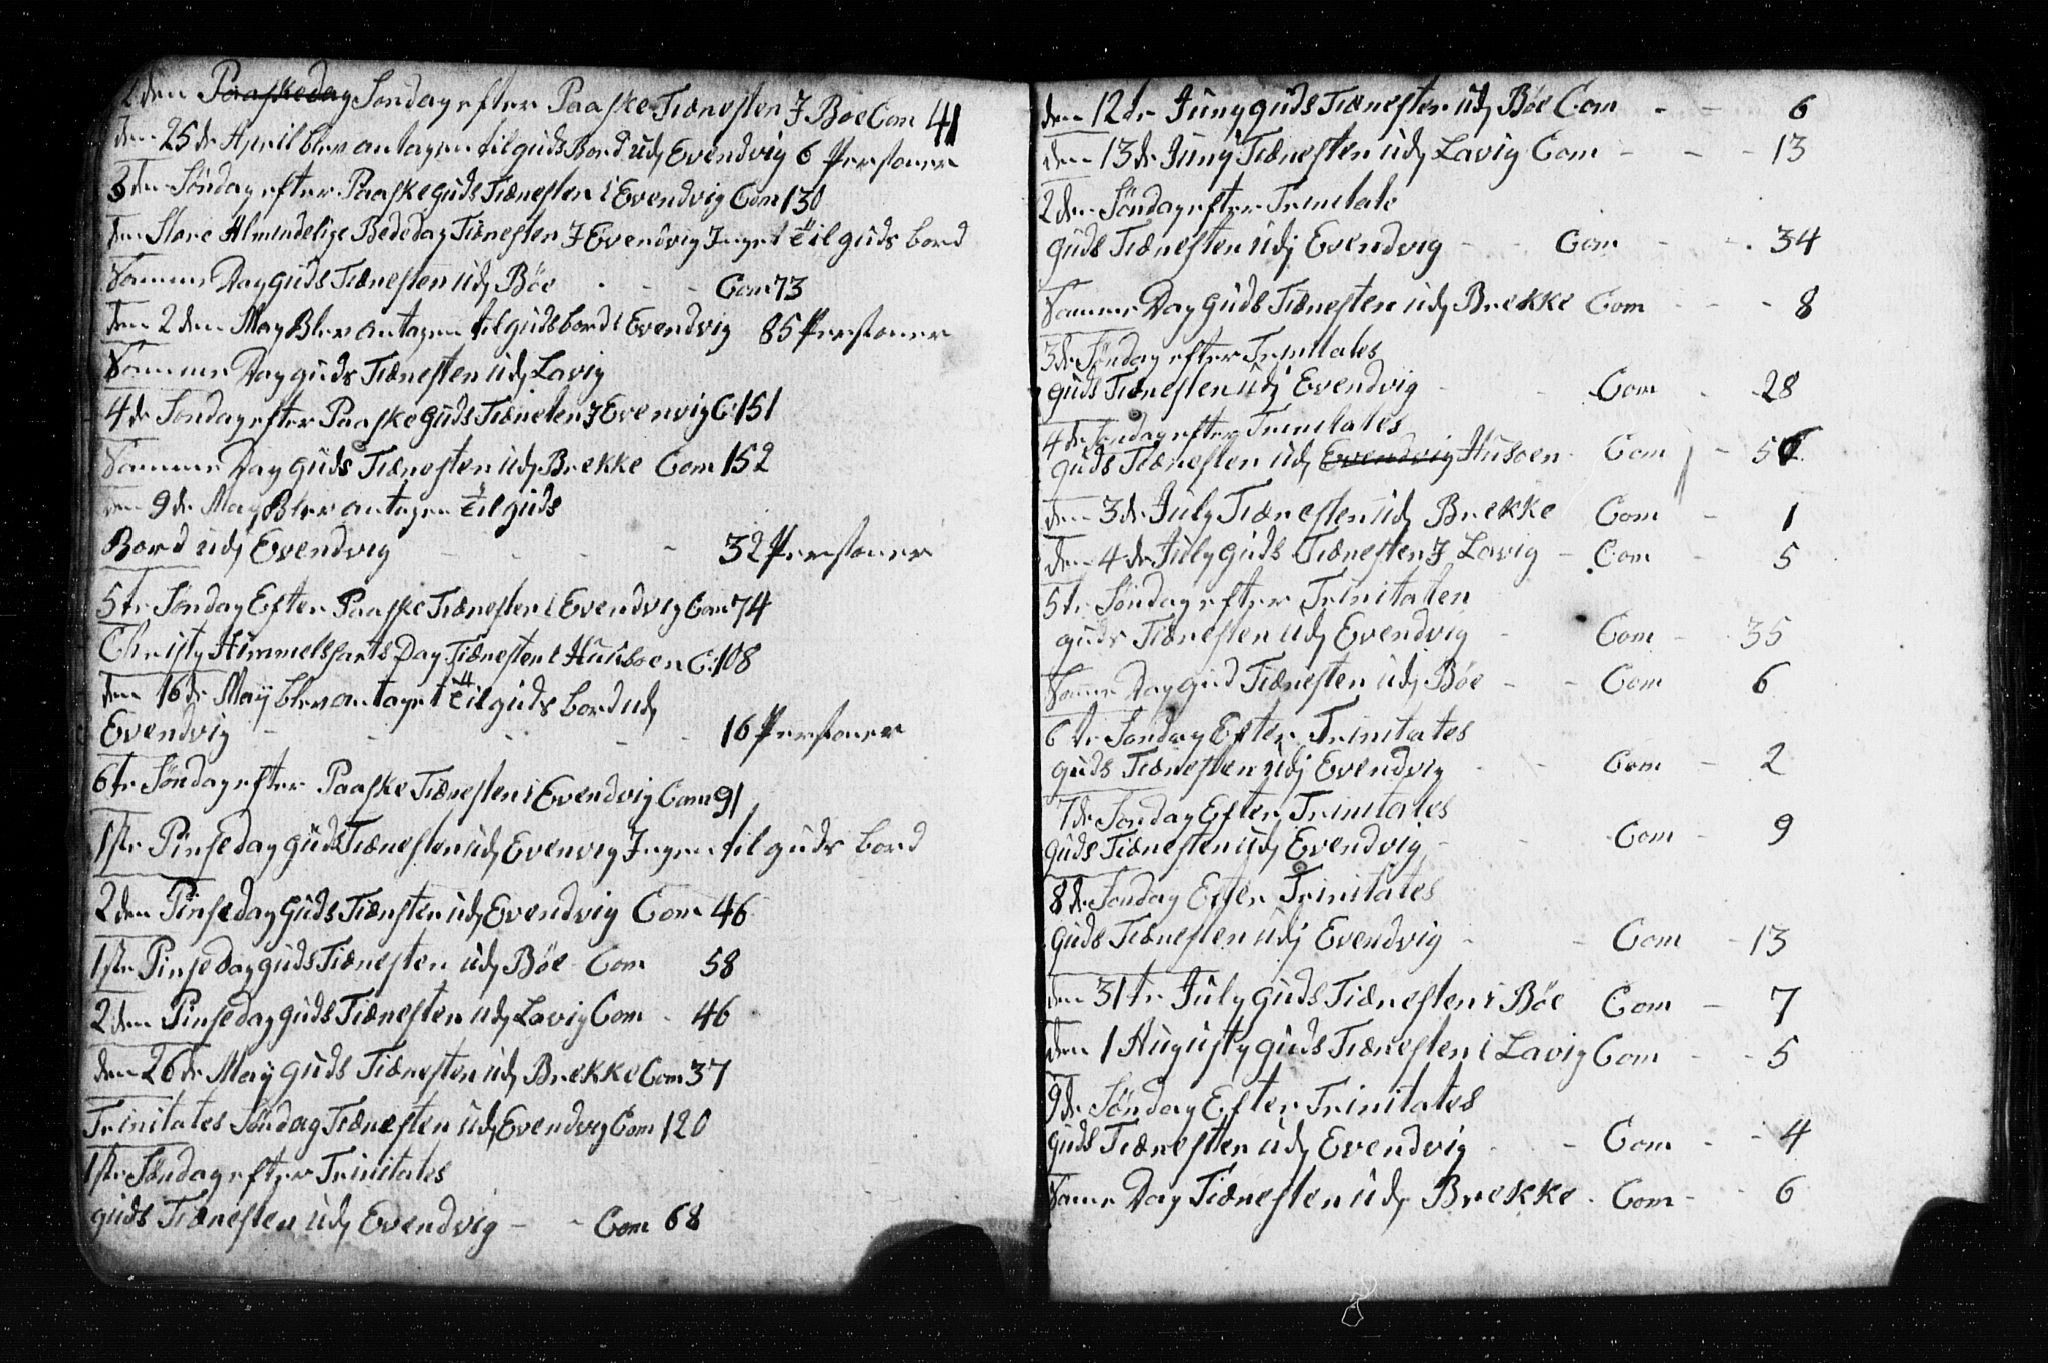 2den Paaskedag Søndag efter Paaske Tiænesten I Boe Com 41
den 25de April blev antagen til guds Bord udj Evendvig 6 Personer
3den Søndag efter Paaske guds Tiænesten i Evendvig Com 130
den Store Almindelige Bededag Tiænesten I Evendvig Inget til guds bord
Samme Dag guds Tiænesten udj Böe - - - Com 73
den 2den May Blev antagen til guds bord i Evendvig 85 Personer
Samme Dag guds Tiænesten udj Lavig
4de Søndag efter Paaske guds Tiæneten I Evenvig C 151
Samme Dag guds Tiænesten udj Brekke Com 152
den 9de May Blev antagen til guds
Bord udj Evendvig - - - - 32 Personer
5te Søndag Efter Paaske Tiænesten i Evendvig Com 74
Christy Himmelsfarts Dag Tiænesten i Huusoen C: 108
den 16de Maÿ blev antaget til guds bord udj
Evendvig - - - - - 16 Personer
6te Søndag efter Paaske Tiænesten i Evendvig Com 91
1ste Pinsedag guds Tiænesten udj Evenvig Ingen til guds bord
2den Pinsedag Guds Tiænsten udj Evendvig Com 46
1ste Pinsedag guds Tiænesten udj Böe Com 58
2den Pinsedag guds Tiænesten udj Lavig Com - 46
den 26de Maÿ guds Tiænesten udj Brekke Com 37
Trinitates Søndag Tiænesten udj Evendvig Com 120
1ste Søndag efter Trinitates
guds Tiænesten udj Evendvig - - Com 68
den 12te Juny guds Tiænesten udj Böe Com - - 6
den 13de Juny Tiænesten udj Lavig Com - - - 13
2den Søndag efter Trinitate
guds Tiænesten udj Evendvig - - Com - - 34
Samme Dag guds Tiænesten udj Brekke Com - - - 8
3de Søndag efter Trinitates
guds Tiænesten udj Evendvig - - Com - - 28
4de Søndag efter Trinitates
guds Tiænesten udj Evendvig Husoen Com - 5
den 3de July Tiænesten udj Brekke Com - 1
den 4de July guds Tiænesten I Lavig - Com - 5
5te Søndag efter Trinitaten
guds Tiænesten udj Evendvig - Com - 35
Samme Dag gud Tiænesten udj Böe - - Com 6
6te Søndag Efter Trinitates
guds Tiænesten udj Evendvig - - Com - 2
7de Søndag Efter Trinitates
guds Tiænesten udj Evendvig - - Com - 9
8de Søndag Efter Trinitates
guds Tiænesten udj Evendvig - - Com - 13
den 31te July guds Tiænesten i Böe Com - 7
den 1 Augusty guds Tiænesten i Lavig Com - - 5
9de Søndag Efter Trinitates
guds Tiænesten udj Evendvig - - Com - - 4
Same Dag Tiænesten udj Brekke - Com - - 6